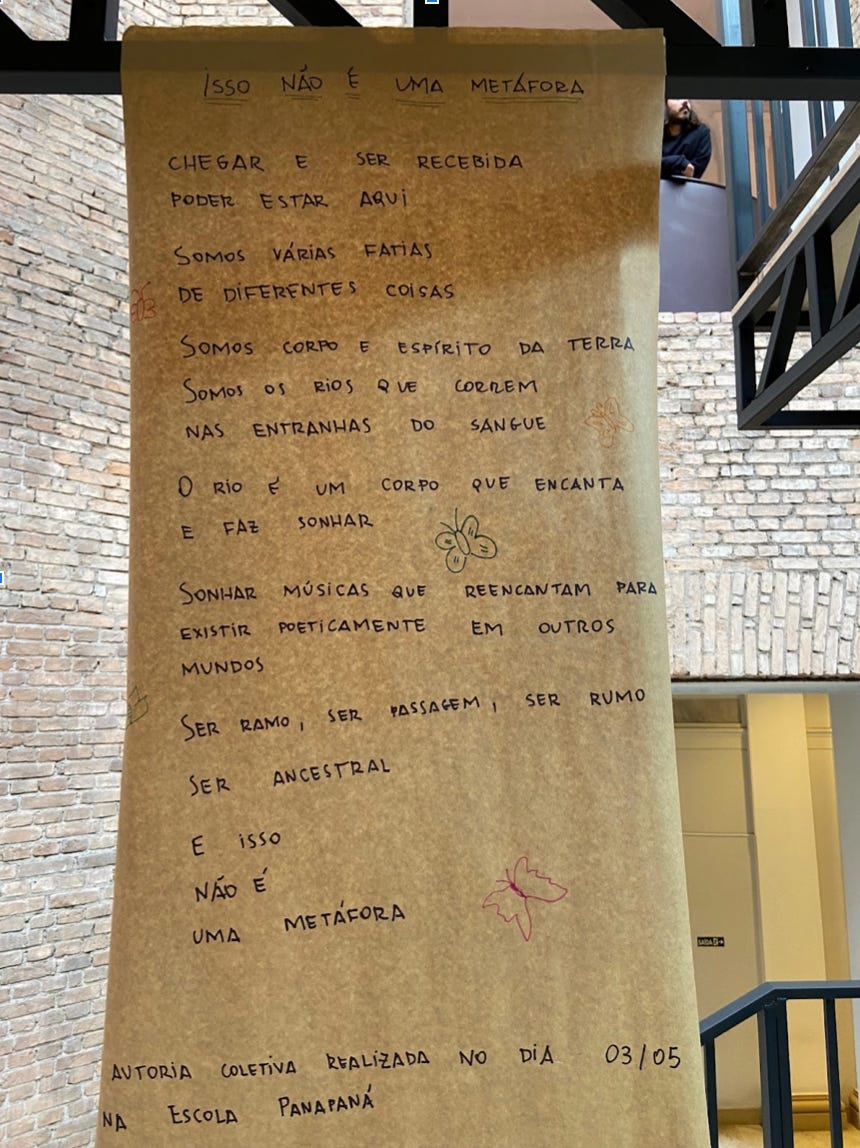 ISSO NÃO É UMA METÁFORA
CHEGAR E SER RECEBIDA
PODER ESTAR AQUI
SOMOS VÁRIAS FATIAS
DE DIFERENTES COISAS
SOMOS CORPO E ESPÍRITO DA TERRA
SOMOS OS RIOS QUE CORREM
NAS ENTRANHAS DO SANGUE
O RIO É UM CORPO QUE ENCANTA
E FAZ SONHAR
SONHAR MÚSICAS QUE REENCANTAM PARA
EXISTIR POETICAMENTE EM OUTROS
MUNDOS
SER RAMO, SER PASSAGEM, SER RUMO
SER ANCESTRAL
E ISSO
NÃO É
UMA METÁFORA
AUTORIA COLETIVA REALIZADA NO DIA 03/05
NA ESCOLA PANAPANÁ
SAÍDA